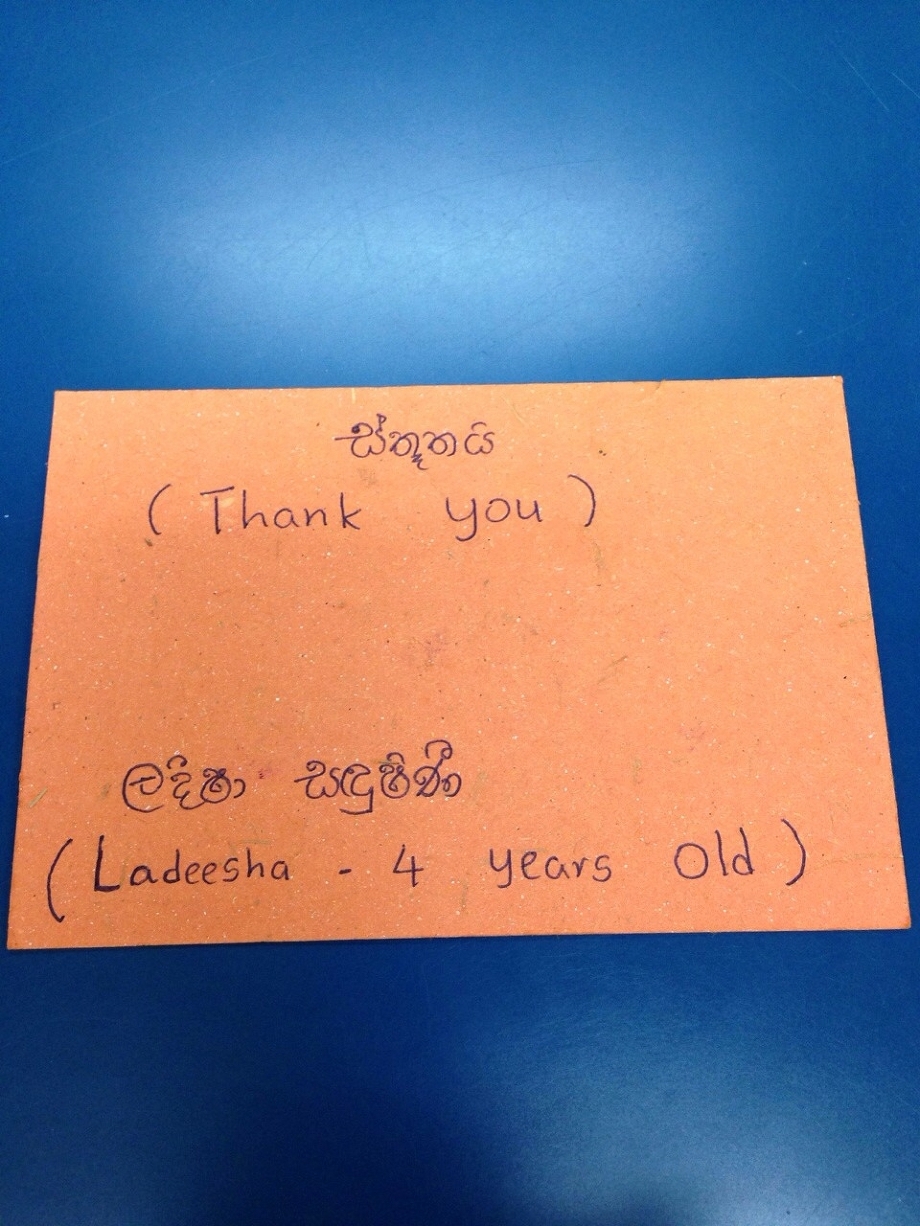 ස්තූතයි
(Thank you)
ලදිෂා සඳුෂිණී
(Ladeesha - 4 years Old)